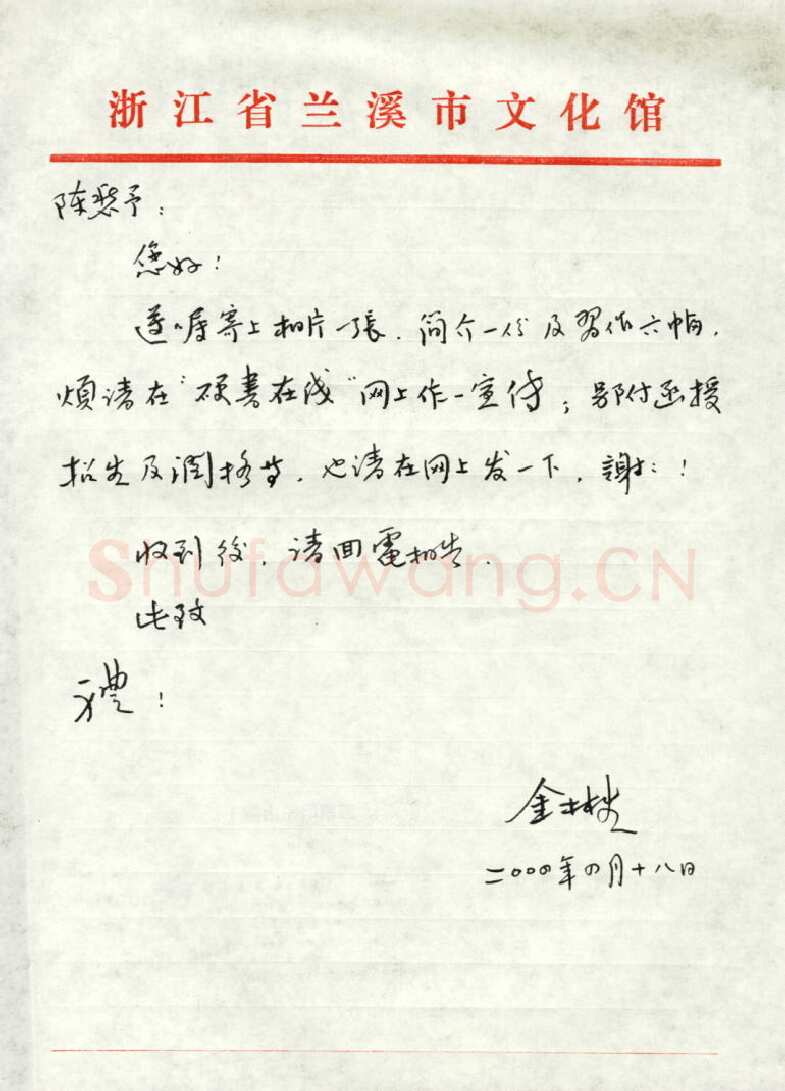 浙江省兰溪市文化馆
陈愁予:
您好!
遵嘱寄上相片一張,简介一份及習作六帧,
煩请在"硬書在线"网上作一宣传;另付函授
招生及润格等,也请在网上发一下,謝:!
收到後,请回電相告.
此致
礼!
金林
二000年四月十八日
Shufawang.CN